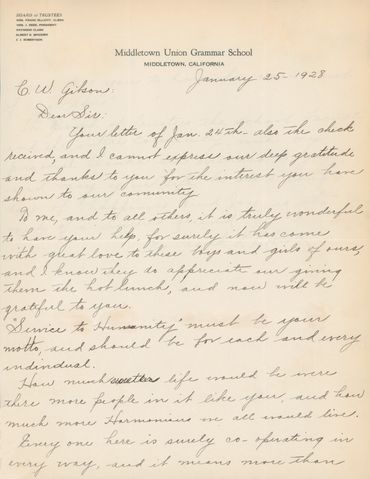 BOARD of TRUSTEES
MRS. FRANK ELLIOTT, CLERK
MRS. J. REED, PRESIDENT
RAYMOND CLARK
ALBERT E. BROOKINS
J. I. ROBERTSON
Middletown Union Grammar School
MIDDLETOWN, CALIFORNIA
January 25 - 1928
C. W. Gibson:
Dear Sir:
Your letter of Jan. 24th - also the check
recived, and I cannot express our deep gratitude
and thanks to you for the interest you have
shown to our comunity
To me, and to all others, it is truly wonderful
to have your help, for surely it has come
with great love to these boys and girls of ours,
and I know they so appreciate our giving
them the hot lunch, and now will be
grateful to you.
"Service to Humanity" must be your
motto, and should be for each and every
individual.
How much sweeter life would be were
there more people in it like you, and how
much more Harmonious we all would live.
Every one here is surely co-operating in
every way, and it means more than